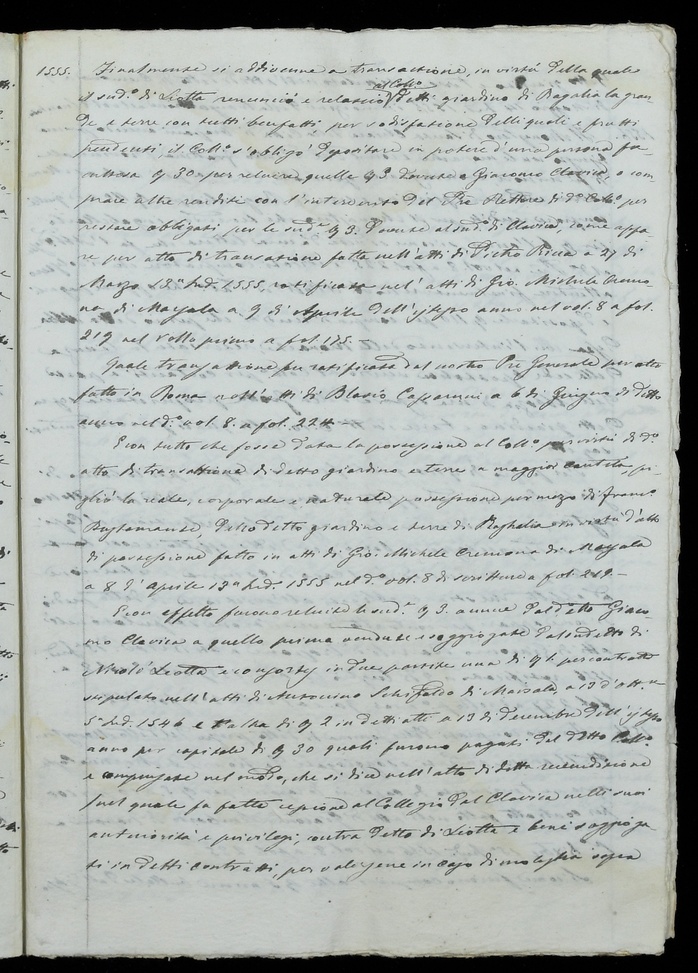 1555. Finalmente si addivenne a transazione, in virtù della quale
al Coll.o
il sud.o di Liotta renunciò e relasciò detti giardino di Ragalia la gran-
de e terre con tutti benfatti, per sodisfazione delli quali e frutti
pendenti, il Coll.o s'obligò depositare in potere d'una persona fa-
30 per reluere quelle 3. dovute a Giacomo Clavica, o com-
prare altre rendite con l'intervento del Pre Rettore di d.o Coll.o per
restare obligati per le sud.e 3. dovute al sud.o di Clavica, come appa-
re per atto di transazione fatto nell'atti di Pietro Ricca a 27 di
Marzo 13.a Ind. 1555, ratificata nel'atti di Gio. Michele Cremo-
na di Marsala a 9 di Aprile dell'istesso anno nel vol. 8 a fol.
219 nel rollo primo a fol 175.-
Quale transazione fu ratificata dal nostro Pre Generale per atto
fatto in Roma nell'atti di Blasio a 6 di Giugno di detto
anno nel d.o vol. 8. a fol. 224 -
E con tutto che fosse data la possessione al Coll.o per virtù di d.o
atto di transazione di detto giardino e terre a maggior cautela, pi-
gliò la reale, corporale e naturale possessione per mezo di Franc.o
Bustamande, di detto giardino e terre di Raghalia in virtù d'atto
di possessione fatto in atti di Gio: Michele Cremona di Marsala
a 8 d'Aprile 13.a Ind. 1555 nel d.o vol. 8 di scritture a fol 219.-
E con effetto furono reluite le sud.e 3. annue dal detto Giaco-
mo Clavica a quello prima vendute e soggiogate dal sudetto di
Nicolò Liotta e consorti in due partite una di per contratto
stipulato nell'atti di Antonino Schifaldo di Marsala, a 13 d'ott.e
5.a Ind. 1546 e l'altra di 2 in detti atti a 13 di Decembre dell'istesso
anno per capitale di 30 quali furono pagati dal detto Coll.o
e compensate nel modo, che si dice nell'atto di detta reluendizione
nel quale fu fatta cessione al Collegio dal Clavica nelli suoi
autorità e privilegi, contra detto di Liotta e beni soggioga-
ti in detti contratti, per valersene in caso di molestia sopra